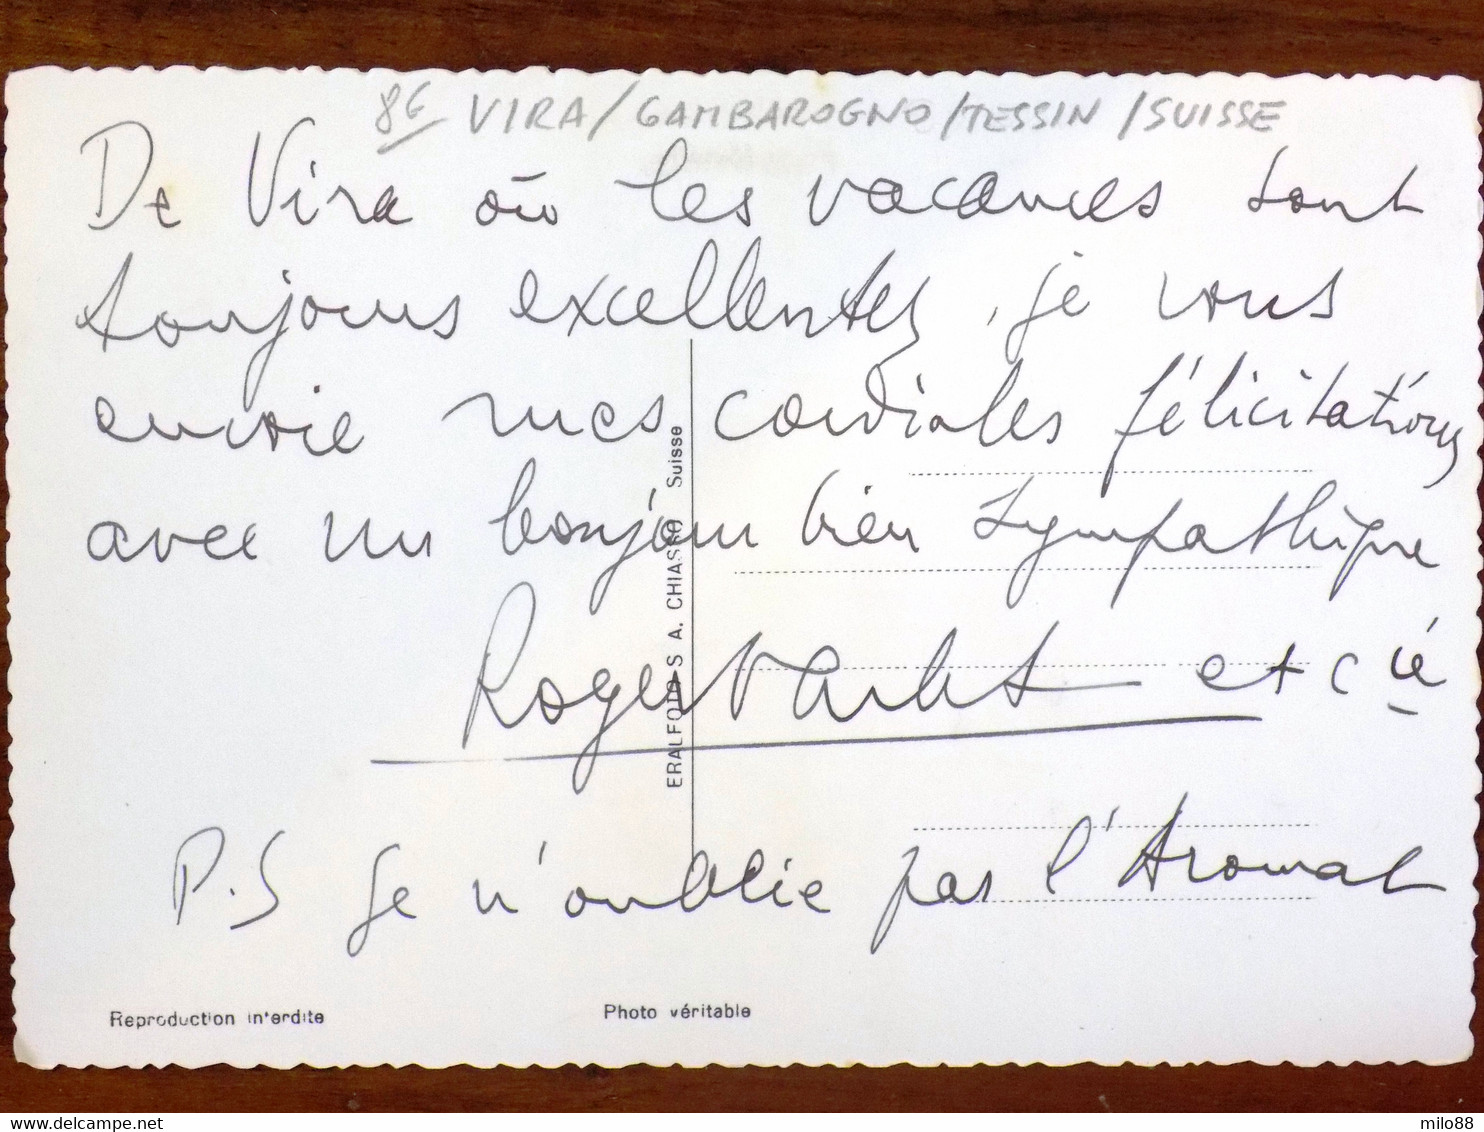 86 VIRA/GAMBAROGNO/TESSIN/SUISSE
De Vira où les vacances sont
toujours excellentes, je vous
envoie mes cordiales félicitations
avec un bonjour bien sympathique
Roger et Cie
P.S Je n'oublie pas l'Aromat
ERALFOTO S A. CHIASSO Suisse
Reproduction interdite
Photo véritable
delcampe.net
milo88